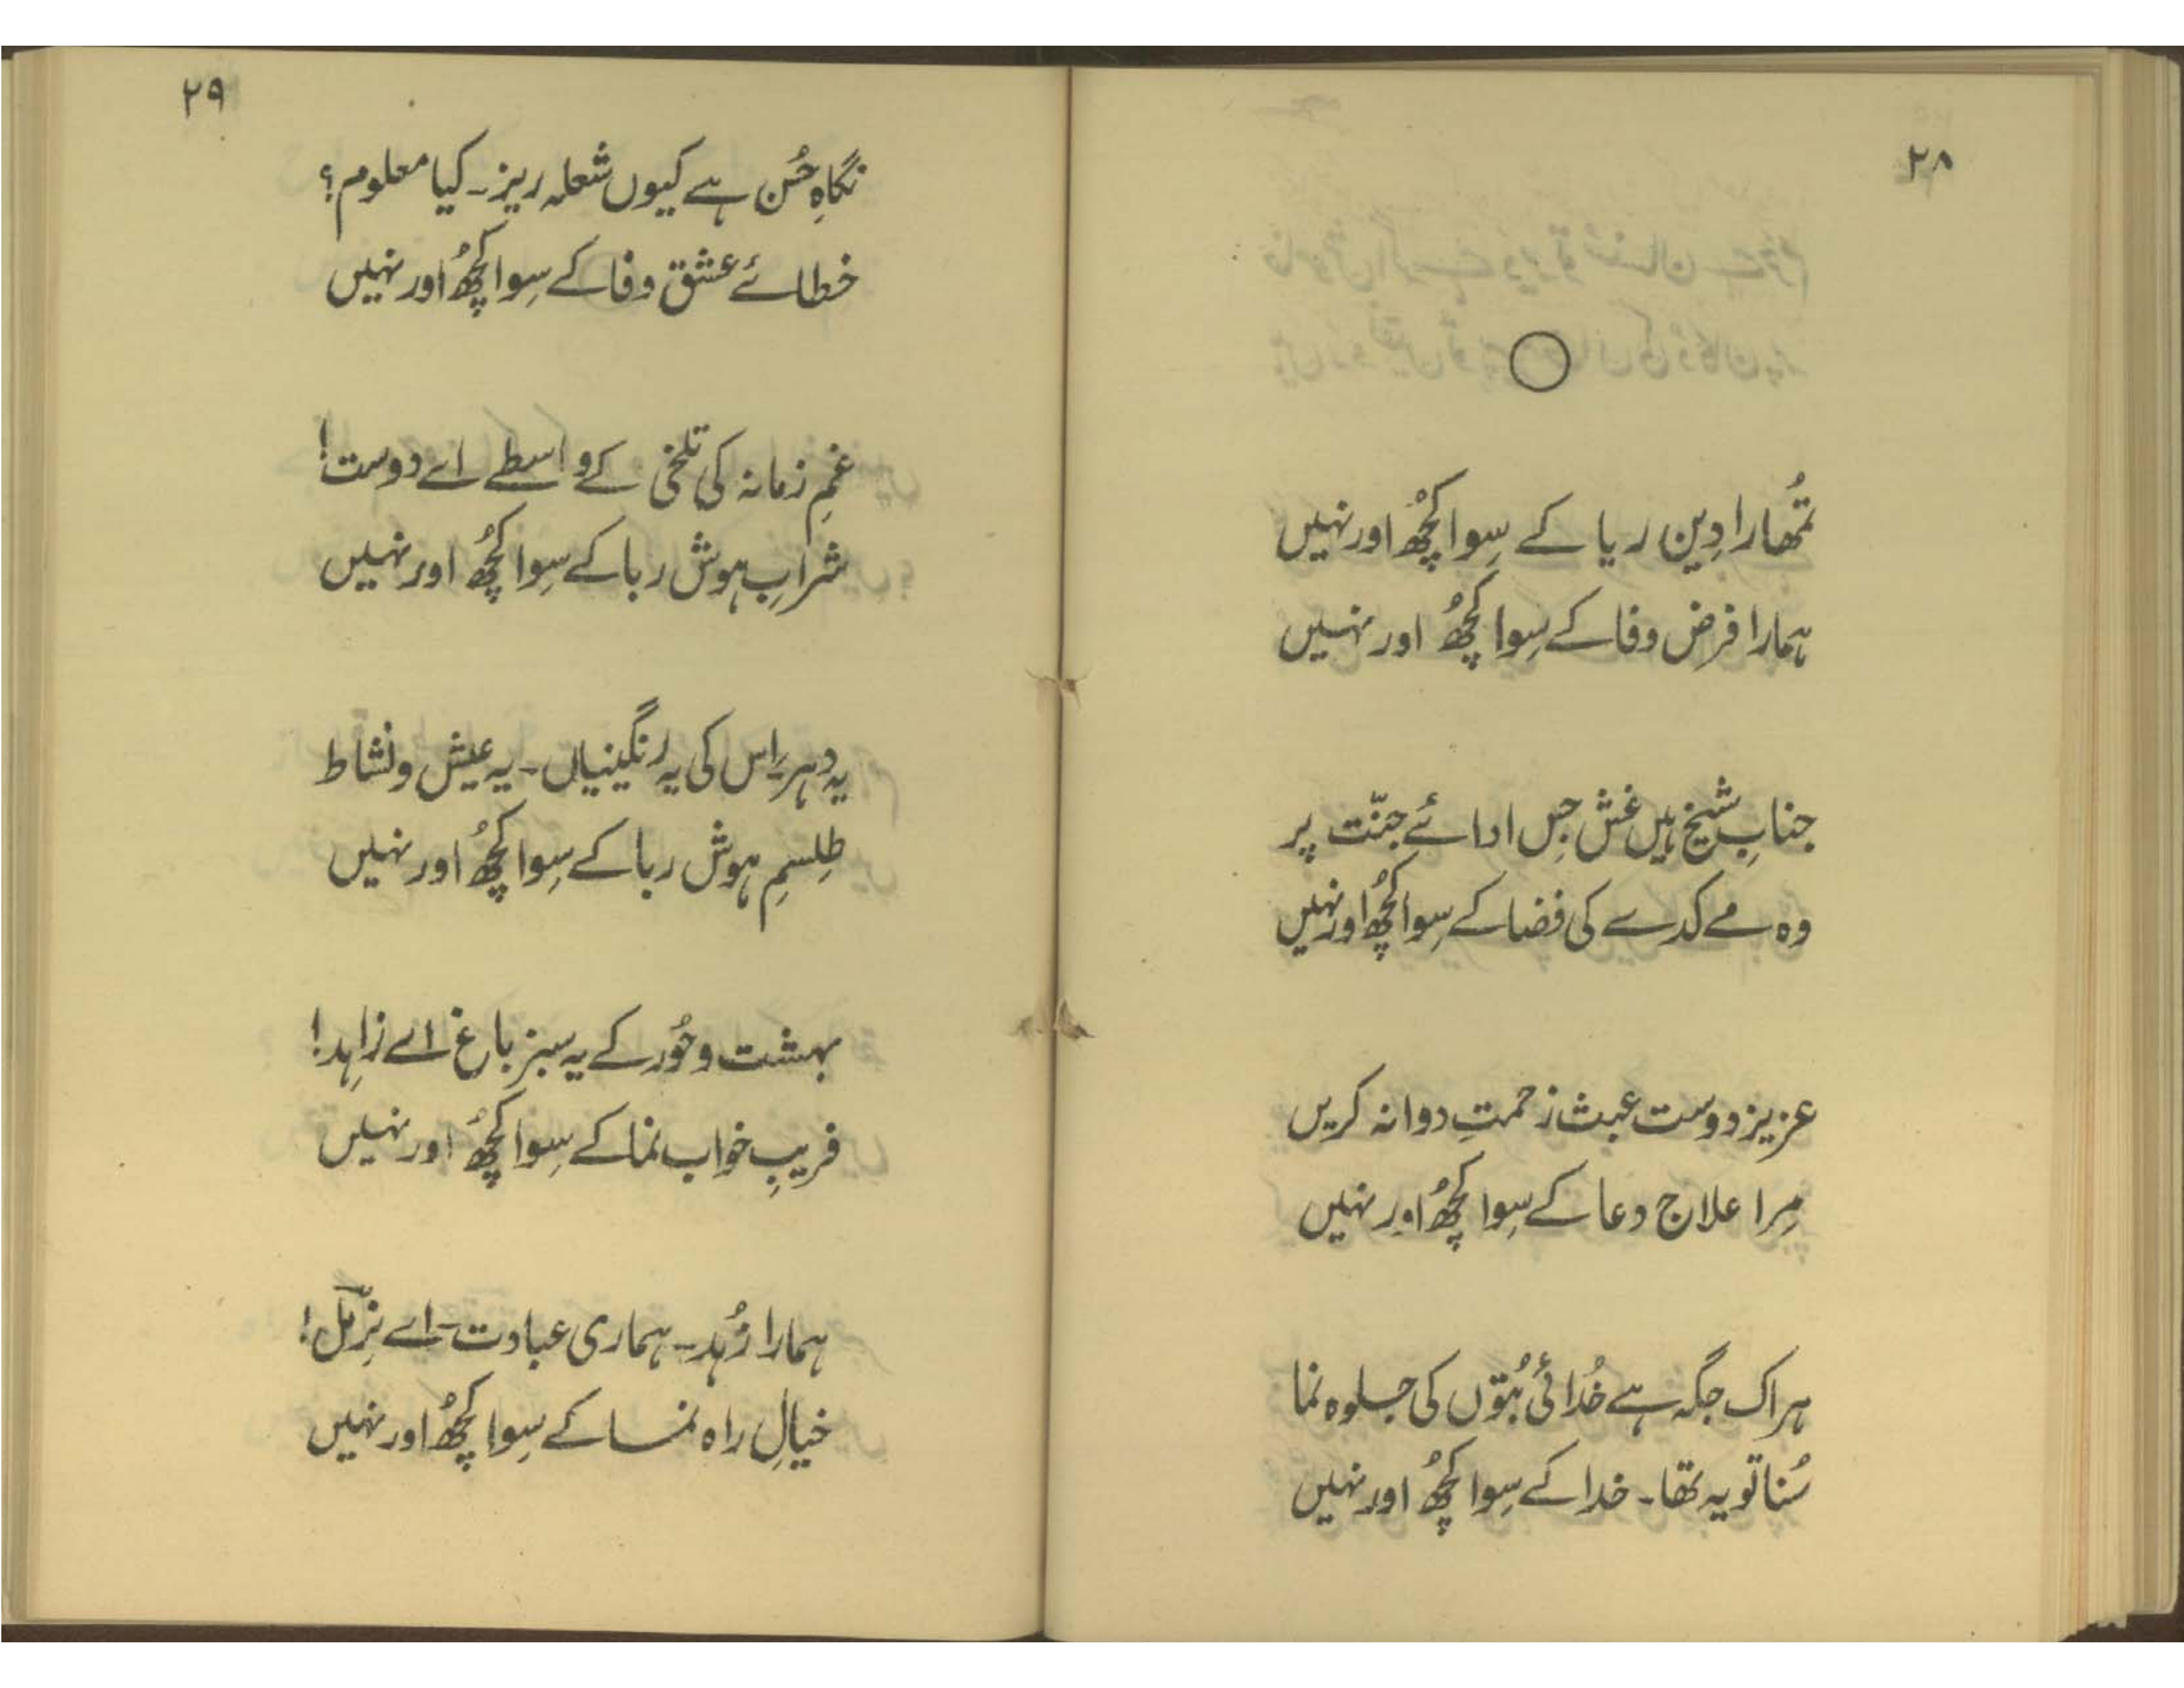 ۲۸
تُمھارا دِین ریا کے سِوا کچُھ اور نہیں
ہمارا فرض وفا کے سِوا کچُھ اور نہیں
جنابِ شیخ ہیں غش جِس ادائے جنّت پر
وہ مے کدے کی فضا کے سِوا کچُھ اور نہیں
عزیز دوست عبث زحمتِ دوا نہ کریں
مِرا علاج دعا کے سِوا کچُھ اور نہیں
ہر اک جگہ ہے خُدائی بُتوں کی جلوہ نما
سُنا تو یہ تھا۔ خدا کے سِوا کچُھ اور نہیں
۲۹
نگاہِ حُسن ہے کیوں شعلہ ریز۔ کیا معلوم؟
خطائے عشق وفا کے سِوا کچُھ اور نہیں
غمِ زمانہ کی تلخی کے واسطے اے دوست!
شرابِ ہوش ربا کے سِوا کچُھ اور نہیں
یہ دہر۔ اِس کی یہ رنگینیاں۔ یہ عیش و نشاط
طِلسمِ ہوش ربا کے سِوا کچُھ اور نہیں
بہشت و حُور کے یہ سبز باغ اے زاہِد!
فریبِ خواب نما کے سِوا کچُھ اور نہیں
ہمارا زُہد۔ ہماری عبادت۔ اے نِرمل!
خیالِ راہ نما کے سِوا کچُھ اور نہیں